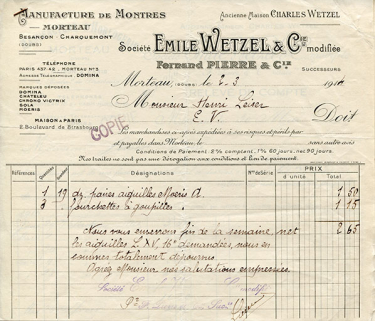 MANUFACTURE DE MONTRES
MORTEAU
BESANÇON - CHARQUEMONT
(DOUBS)
Ancienne Maison CHARLES WETZEL
Société EMILE WETZEL & Cie modifiée
Fernand PIERRE & Cie
SUCCESSEURS
TÉLÉPHONE
PARIS 437-42 - MORTEAU N°3
ADRESSE TÉLÉGRAPHIQUE DOMINA
MARQUES DÉPOSÉES
DOMINA
CHATELEU
CHRONO VICTRIX
SOLA
MOERIS
MAISON À PARIS
Boulevard de Strasbourg
COPIE
Morteau, (DOUBS) le 2.3 19
Monsieur Henri
E. V. Doit
les marchandises ci-après expédiées à ses risques et périls par
et payables dans Morteau, le sans autre avis
Conditions de Paiement 2% comptant, 1% 60 jours, net 90 jours.
Nos traites ne sont pas une dérogation aux conditions et lieu de paiement.
Références Désignations Nos de Série PRIX
d'unité Total
1 19 dz paires aiguilles Moeris A. 1.50
3 fourchettes à goupilles 1.15
Nous vous enverrons fin de la semaine, net 2.65
les aiguilles L. XV, demandées, nous en
sommes totalement dépourvus
Agréez Monsieur nos salutations empressées.
Société